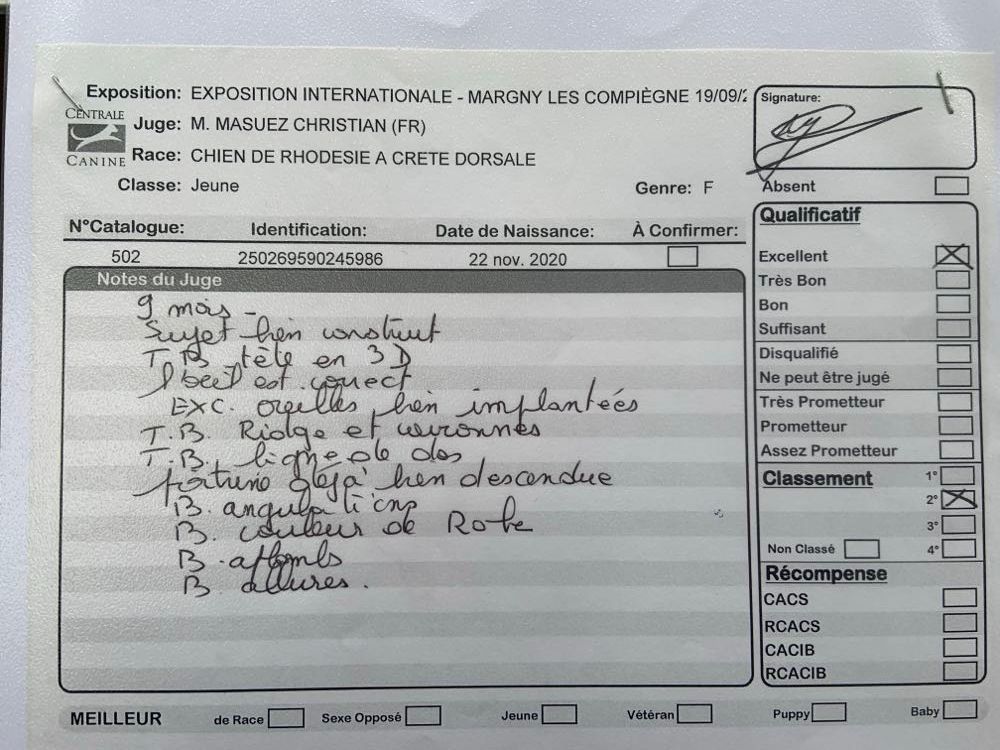 Exposition: EXPOSITION INTERNATIONALE - MARGNY LES COMPIÈGNE 19/09/2
CENTRALE
CANINE
Juge: M. MASUEZ CHRISTIAN (FR)
Race: CHIEN DE RHODESIE A CRETE DORSALE
Classe: Jeune
Genre: F
Signature:
Absent
N°Catalogue: Identification: Date de Naissance: À Confirmer:
502 250269590245986 22 nov. 2020
Notes du Juge
9 mois -
Sujet bien construit
T.B. tête en 3D
l'oeil est correct
EXC. oreilles bien implantées
T.B. Ridge et couronnes
T.B. ligne de dos
poitrine déjà bien descendue
B. angulations
B. couleur de Robe
B. aplombs
B. allures.
Qualificatif
Excellent
Très Bon
Bon
Suffisant
Disqualifié
Ne peut être jugé
Très Prometteur
Prometteur
Assez Prometteur
Classement
1°
2°
3°
Non Classé
4°
Récompense
CACS
RCACS
CACIB
RCACIB
MEILLEUR de Race Sexe Opposé Jeune Vétéran Puppy Baby